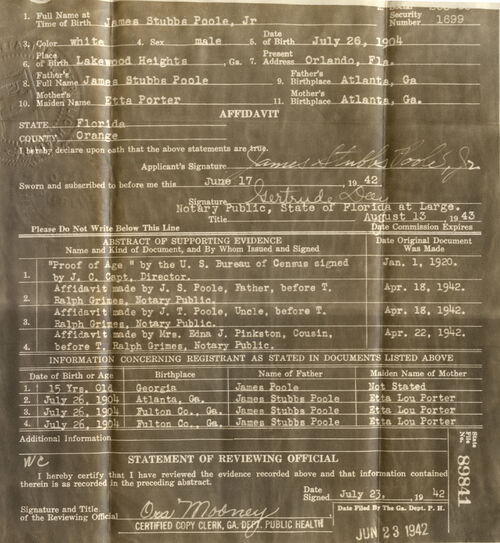 1. Full Name at Time of Birth James Stubbs Poole, Jr 2. Social Security Number 1699
3. Color white 4. Sex male 5. Date of Birth July 26, 1904
6. Place of Birth Lakewood Heights, Ga. 7. Present Address Orlando, Fla.
8. Father's Full Name James Stubbs Poole 9. Father's Birthplace Atlanta, Ga
10. Mother's Maiden Name Etta Porter 11. Mother's Birthplace Atlanta, Ga.
AFFIDAVIT
STATE Florida
COUNTY Orange
I hereby declare upon oath that the above statements are true.
Applicant's Signature James Stubbs Poole, Jr
Sworn and subscribed to before me this June 17, 1942
Signature Gertrude Day
Notary Public, State of Florida at Large.
Title August 13, 1943
Please Do Not Write Below This Line Date Commission Expires
ABSTRACT OF SUPPORTING EVIDENCE
Name and Kind of Document, and By Whom Issued and Signed Date Original Document Was Made
1. "Proof of Age " by the U. S. Bureau of Census signed by J. C. Capt, Director. Jan. 1, 1920.
2. Affidavit made by J. S. Poole, Father, before T. Ralph Grimes, Notary Public. Apr. 18, 1942.
3. Affidavit made by J. T. Poole, Uncle, before T. Ralph Grimes, Notary Public. Apr. 18, 1942.
4. Affidavit made by Mrs. Edna J. Pinkston, Cousin, before T. Ralph Grimes, Notary Public. Apr. 22, 1942.
INFORMATION CONCERNING REGISTRANT AS STATED IN DOCUMENTS LISTED ABOVE
Date of Birth or Age Birthplace Name of Father Maiden Name of Mother
1. 15 Yrs. Old Georgia James Poole Not Stated
2. July 26, 1904 Atlanta, Ga. James Stubbs Poole Etta Lou Porter
3. July 26, 1904 Fulton Co., Ga. James Stubbs Poole Etta Lou Porter
4. July 26, 1904 Fulton Co., Ga. James Stubbs Poole Etta Lou Porter
Additional Information
State File No. 89841
WC STATEMENT OF REVIEWING OFFICIAL
I hereby certify that I have reviewed the evidence recorded above and that information contained
therein is as recorded in the preceding abstract.
Date Signed July 23, 1942
Signature and Title of the Reviewing Official Ora Mooney
CERTIFIED COPY CLERK, GA. DEPT. PUBLIC HEALTH
Date Filed By The Ga. Dept. P. H.
JUN 23 1942